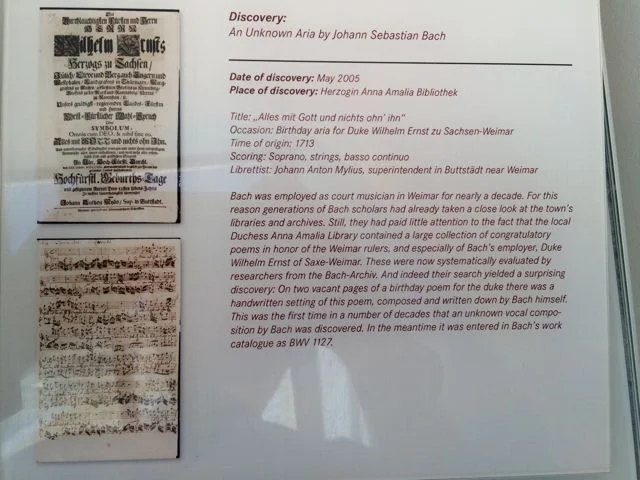 Der
Durchlauchtigsten Fürsten und Herrn
HERRN
Wilhelm Ernsts
Herzogs zu Sachsen/
SYMBOLUM.
Omnia cum DEO, & nihil sine eo.
Alles mit GOTT und nichts ohn Ihn.
Hochfürstl. Geburths-Tage
Discovery:
An Unknown Aria by Johann Sebastian Bach
Date of discovery: May 2005
Place of discovery: Herzogin Anna Amalia Bibliothek
Title: „Alles mit Gott und nichts ohn' ihn“
Occasion: Birthday aria for Duke Wilhelm Ernst zu Sachsen-Weimar
Time of origin: 1713
Scoring: Soprano, strings, basso continuo
Librettist: Johann Anton Mylius, superintendent in Buttstädt near Weimar
Bach was employed as court musician in Weimar for nearly a decade. For this
reason generations of Bach scholars had already taken a close look at the town's
libraries and archives. Still, they had paid little attention to the fact that the local
Duchess Anna Amalia Library contained a large collection of congratulatory
poems in honor of the Weimar rulers, and especially of Bach's employer, Duke
Wilhelm Ernst of Saxe-Weimar. These were now systematically evaluated by
researchers from the Bach-Archiv. And indeed their search yielded a surprising
discovery: On two vacant pages of a birthday poem for the duke there was a
handwritten setting of this poem, composed and written down by Bach himself.
This was the first time in a number of decades that an unknown vocal compo-
sition by Bach was discovered. In the meantime it was entered in Bach's work
catalogue as BWV 1127.